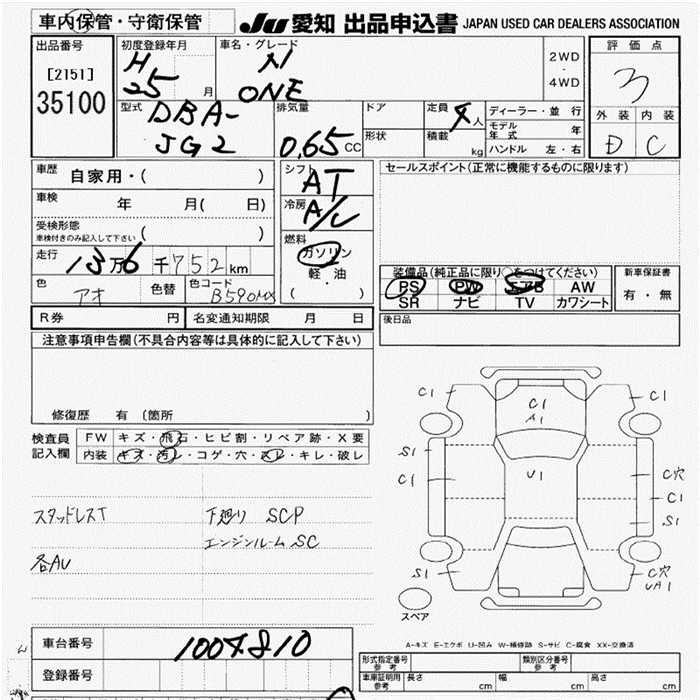 車内保管・守衛保管
JU 愛知 出品申込書 JAPAN USED CAR DEALERS ASSOCIATION
出品番号
[2151]
35100
初度登録年月
H
25 月
車名・グレード
N
ONE
2WD
・
4WD
評価点
3
外装 内装
D C
型式
DBA-
JG2
排気量
0.65 CC
ドア
形状
定員
4人
積載
kg
ディーラー・並行
モデル年式 年
ハンドル 左・右
車歴
自家用・( )
車検
年 月( 日)
受検形態
車検付きのみ記入して下さい ( )
走行
13万6千752km
色
アオ
色替
色コード
B590MX
シフト
AT
冷房
A/C
燃料
ガソリン
軽・油
( )
セールスポイント(正常に機能するものに限ります)
装備品(純正品に限り○をつけてください)
PS PW エアB AW
SR ナビ TV カワシート
新車保証書
有・無
後日品
R券 円
名変通知期限 月 日
注意事項申告欄(不具合内容等は具体的に記入して下さい)
修復歴 有 〔箇所 〕
検査員
記入欄
FW キズ・飛石・ヒビ割・リペア跡・X要
内装 キズ・汚レ・コゲ・穴・スレ・キレ・破レ
スタッドレスT
各AU
下廻り SCP
エンジンルーム SC
C1
C1
A1
C1
S1
C1
U1
C穴
C1
S1
S1
C穴
UA1
スペア
A-キズ E-エクボ U-凹み W-補修跡 S-サビ C-腐食 XX-交換済
車台番号
1007810
登録番号
形式指定番号
参考
類別区分番号
参考
車庫証明用
参考
長さ cm
幅 cm
高さ cm